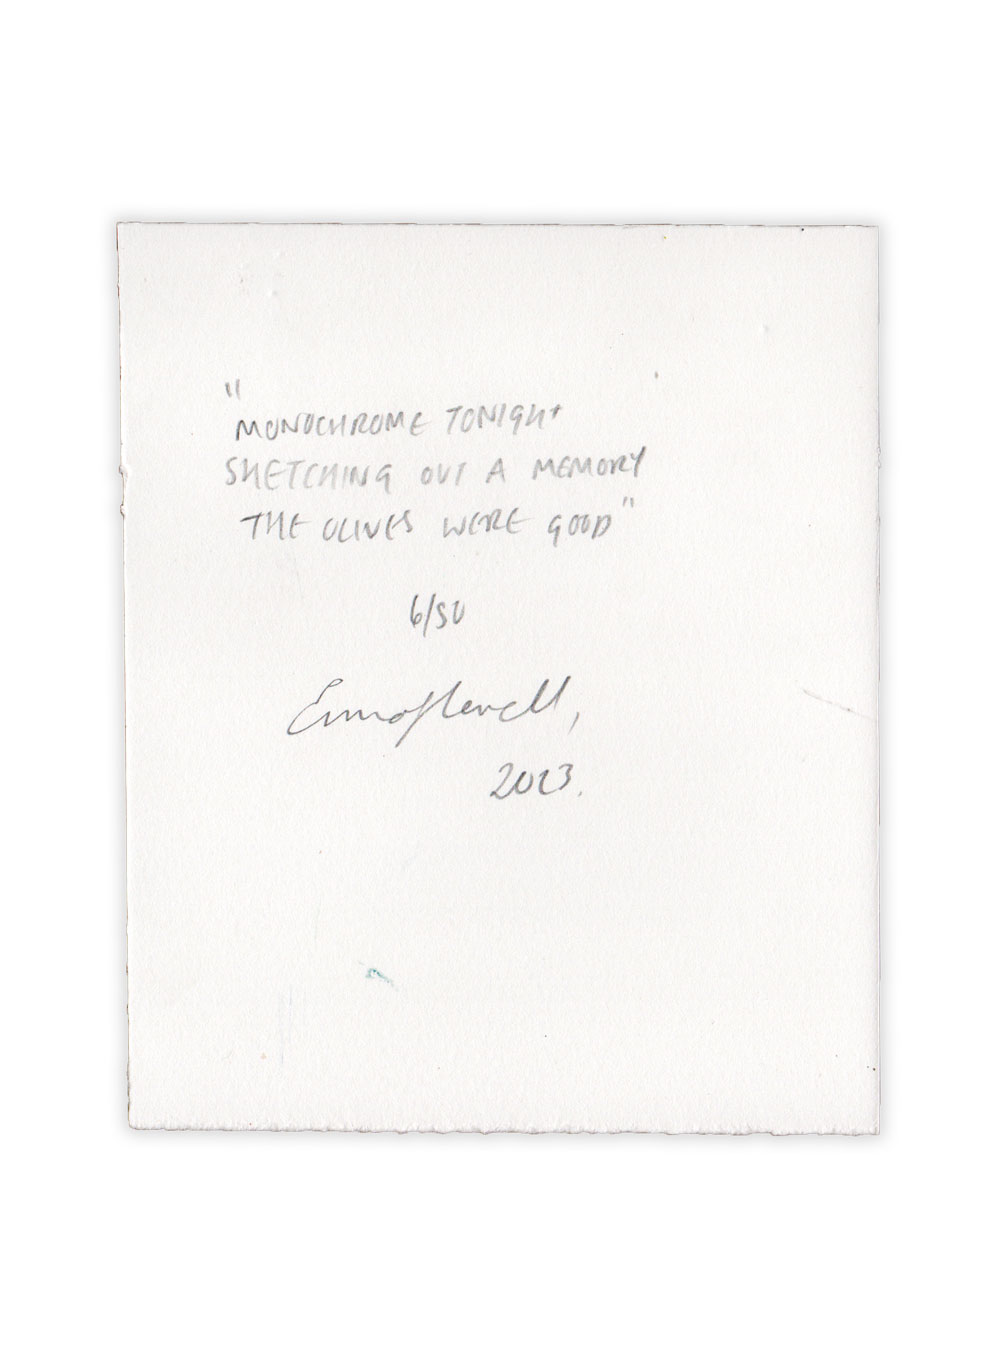 "
MONOCHROME TONIGHT
SKETCHING OUT A MEMORY
THE OLIVES WERE GOOD"
6/50
2023.